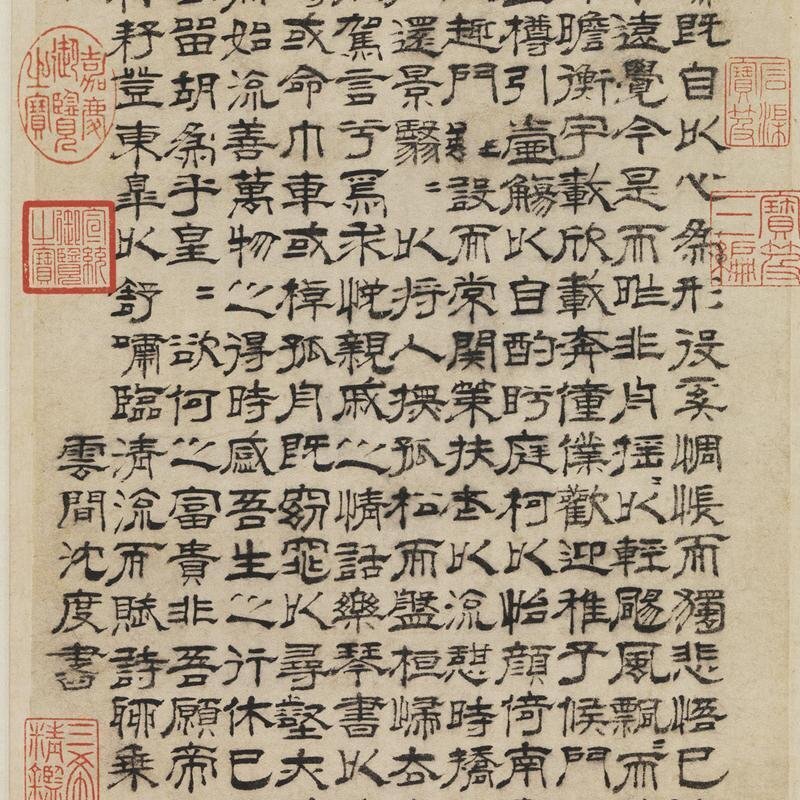 既自以心爲形役奚惆悵而獨悲悟已
遠覺今是而昨非舟搖〻以輕颺風飄〻而
瞻衡宇載欣載奔僮僕歡迎稚子候門
樽引壺觴以自酌眄庭柯以怡顏倚南
趣門雖設而常關策扶老以流憩時矯
還景翳〻以將入撫孤松而盤桓歸去
駕言兮焉求悅親戚之情話樂琴書以
或命巾車或棹孤舟既窈窕以尋壑亦
始流善萬物之得時感吾生之行休已
留胡爲乎皇〻欲何之富貴非吾願帝
耔登東皋以舒嘯臨清流而賦詩聊乘
雲間沈度書
石渠寶笈
寶笈三編
嘉慶御覽之寶
宣統御覽之寶
三希
精鑑